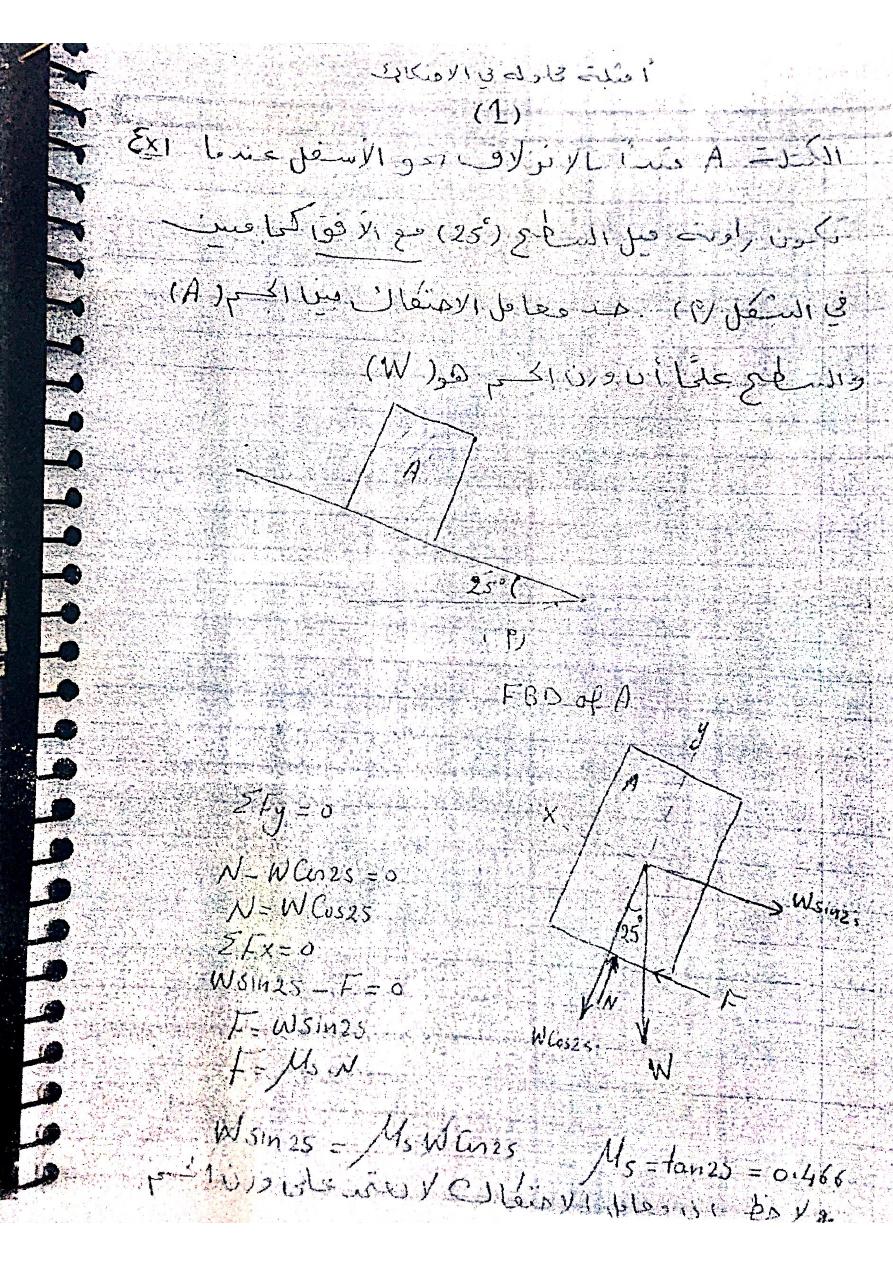 أمثلة محلولة في الاحتكاك
(1)
Ex1 الكتلة A تبدأ بالانزلاق نحو الأسفل عندما
تكون زاوية ميل السطح (25°) مع الأفق كما مبين
في الشكل (م). جد معامل الاحتكاك بين الجسم (A)
والسطح علماً أن وزن الجسم هو (W)
A
25°
(م)
FBD of A
y
A
x
ΣFy = 0
N - W Cos25 = 0
N = W Cos25
ΣFx = 0
W sin25 - F = 0
F = W sin25
F = Ms . N
W sin25
25°
N
F
W Cos25
W
W sin 25 = Ms W Cos25
Ms = tan25 = 0.466
لاحظ ان معامل الاحتكاك لا يعتمد على وزن الجسم